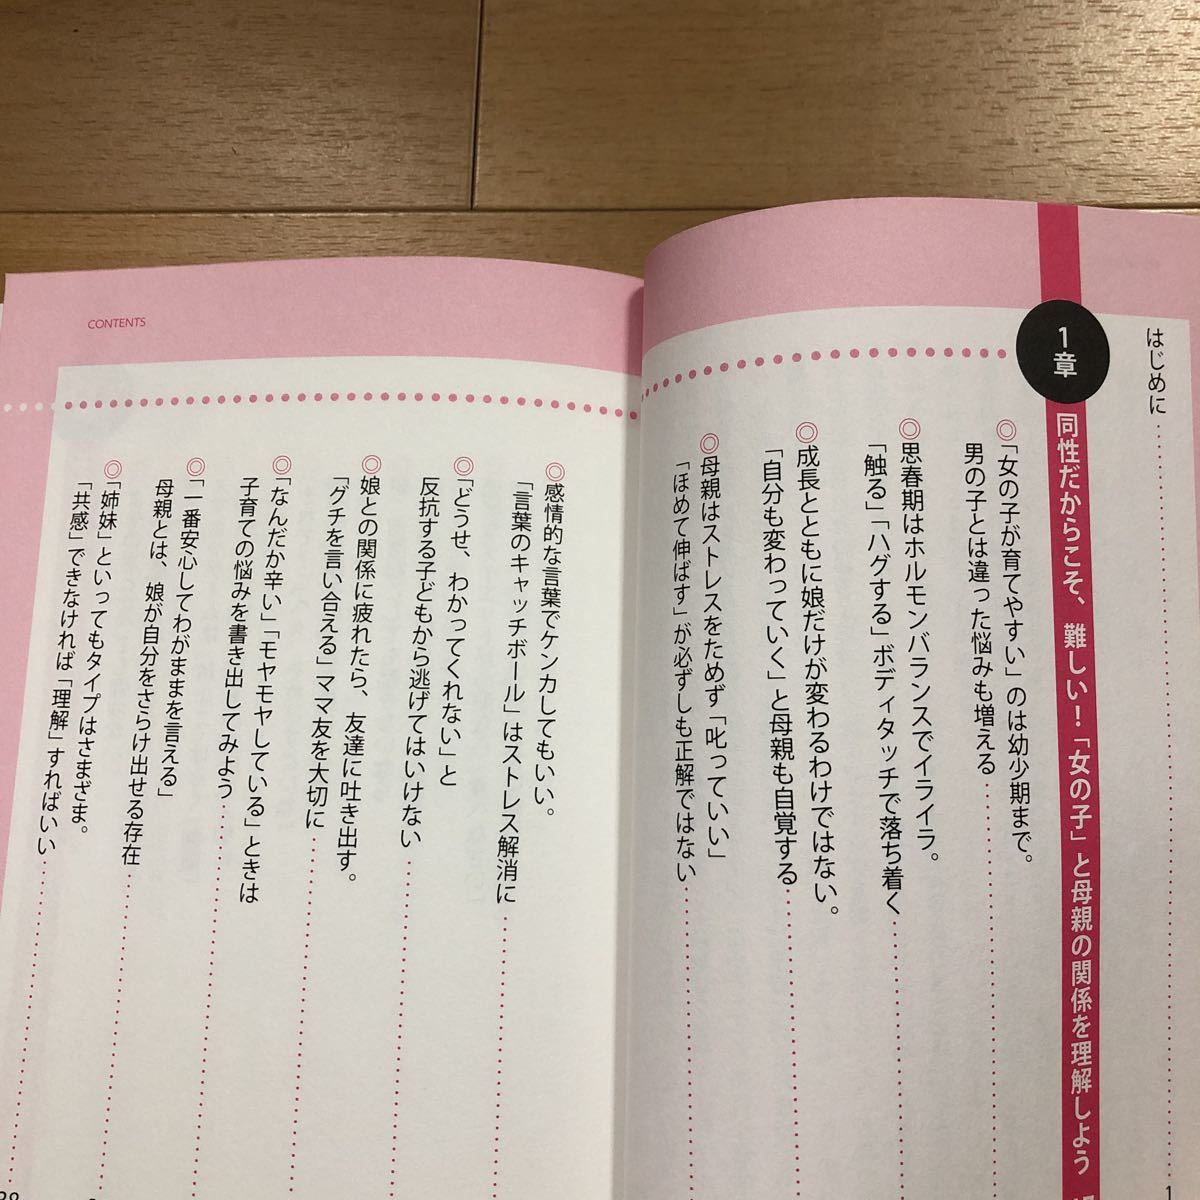 はじめに
1
1章
同性だからこそ、難しい!「女の子」と母親の関係を理解しよう
◎「女の子が育てやすい」のは幼少期まで。
男の子とは違った悩みも増える
◎思春期はホルモンバランスでイライラ。
「触る」「ハグする」ボディタッチで落ち着く
◎成長とともに娘だけが変わるわけではない。
「自分も変わっていく」と母親も自覚する
◎母親はストレスをためず「叱っていい」
「ほめて伸ばす」が必ずしも正解ではない
CONTENTS
◎感情的な言葉でケンカしてもいい。
「言葉のキャッチボール」はストレス解消に
◎「どうせ、わかってくれない」と
反抗する子どもから逃げてはいけない
◎娘との関係に疲れたら、友達に吐き出す。
「グチを言い合える」ママ友を大切に
◎「なんだか辛い」「モヤモヤしている」ときは
子育ての悩みを書き出してみよう
◎「一番安心してわがままを言える」
母親とは、娘が自分をさらけ出せる存在
◎「姉妹」といってもタイプはさまざま。
「共感」できなければ「理解」すればいい